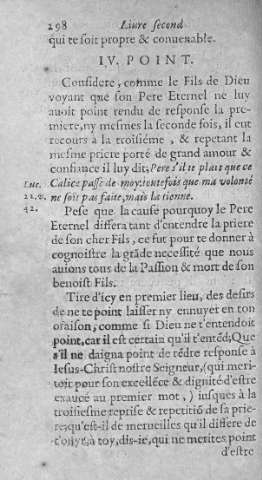 298 Liure second
qui te soit propre & conuenable.
IV. POINT.
Considere, comme le Fils de Dieu
voyant que son Pere Eternel ne luy
auoit point rendu de response la pre-
miere, ny mesmes la seconde fois, il eut
recours à la troisiéme, & repetant la
mesme priere porté de grand amour &
confiance il luy dit, Pere s'il te plaît que ce
Luc. Calice passe de moy: toutefois que ma volonté
22. v. ne soit pas faite, mais la tienne.
42. Pese que la cause pourquoy le Pere
Eternel differa tant d'entendre la priere
de son cher Fils, ce fut pour te donner à
cognoistre la grãde necessité que nous
auions tous de la Passion & mort de son
benoist Fils.
Tire d'icy en premier lieu, des desirs
de ne te point laisser ny ennuyer en ton
oraison, comme si Dieu ne t'entendoit
point, car il est certain qu'il t'entẽd, Que
s'il ne daigna point de rẽdre response à
Iesus-Christ nostre Seigneur, (qui meri-
toit pour son excellẽce & dignité d'estre
exaucé au premier mot,) iusques à la
troisiesme reprise & repetitiõ de sa prie-
re; qu'est-il de merueilles qu'il differe de
t'ouyr, à toy, dis-ie, qui ne merites point
d'estre